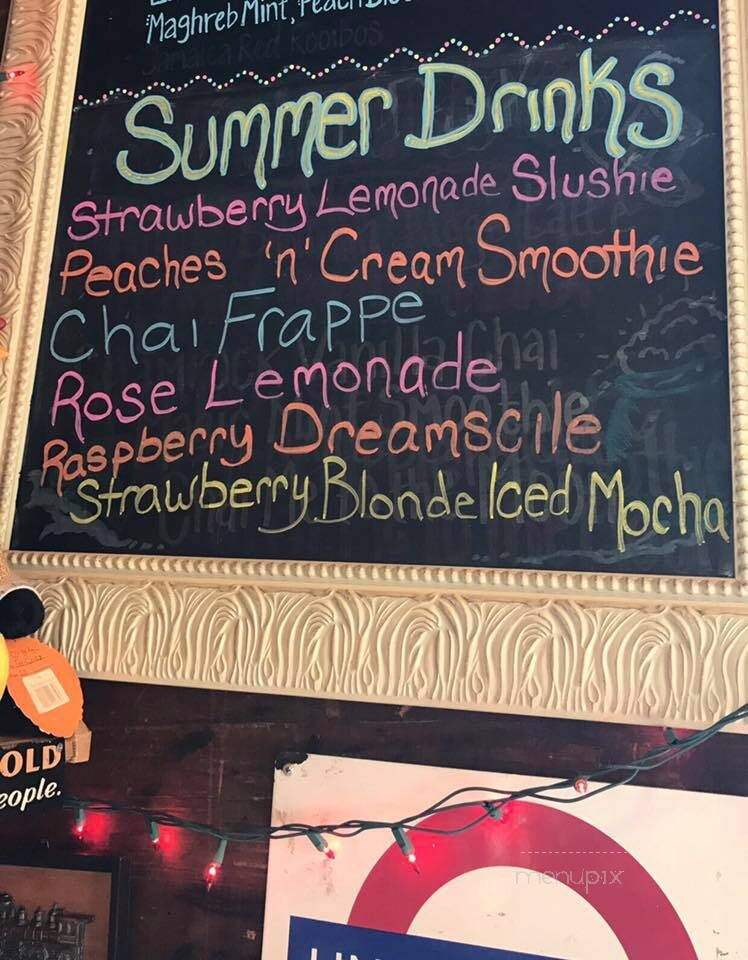 Maghreb Mint, Peach
Jamaica Red Rooibos
Summer Drinks
Strawberry Lemonade Slushie
Peaches 'n' Cream Smoothie
Chai Frappe
Rose Lemonade
Raspberry Dreamscile
Strawberry Blonde Iced Mocha
OLD
eople.
menupix